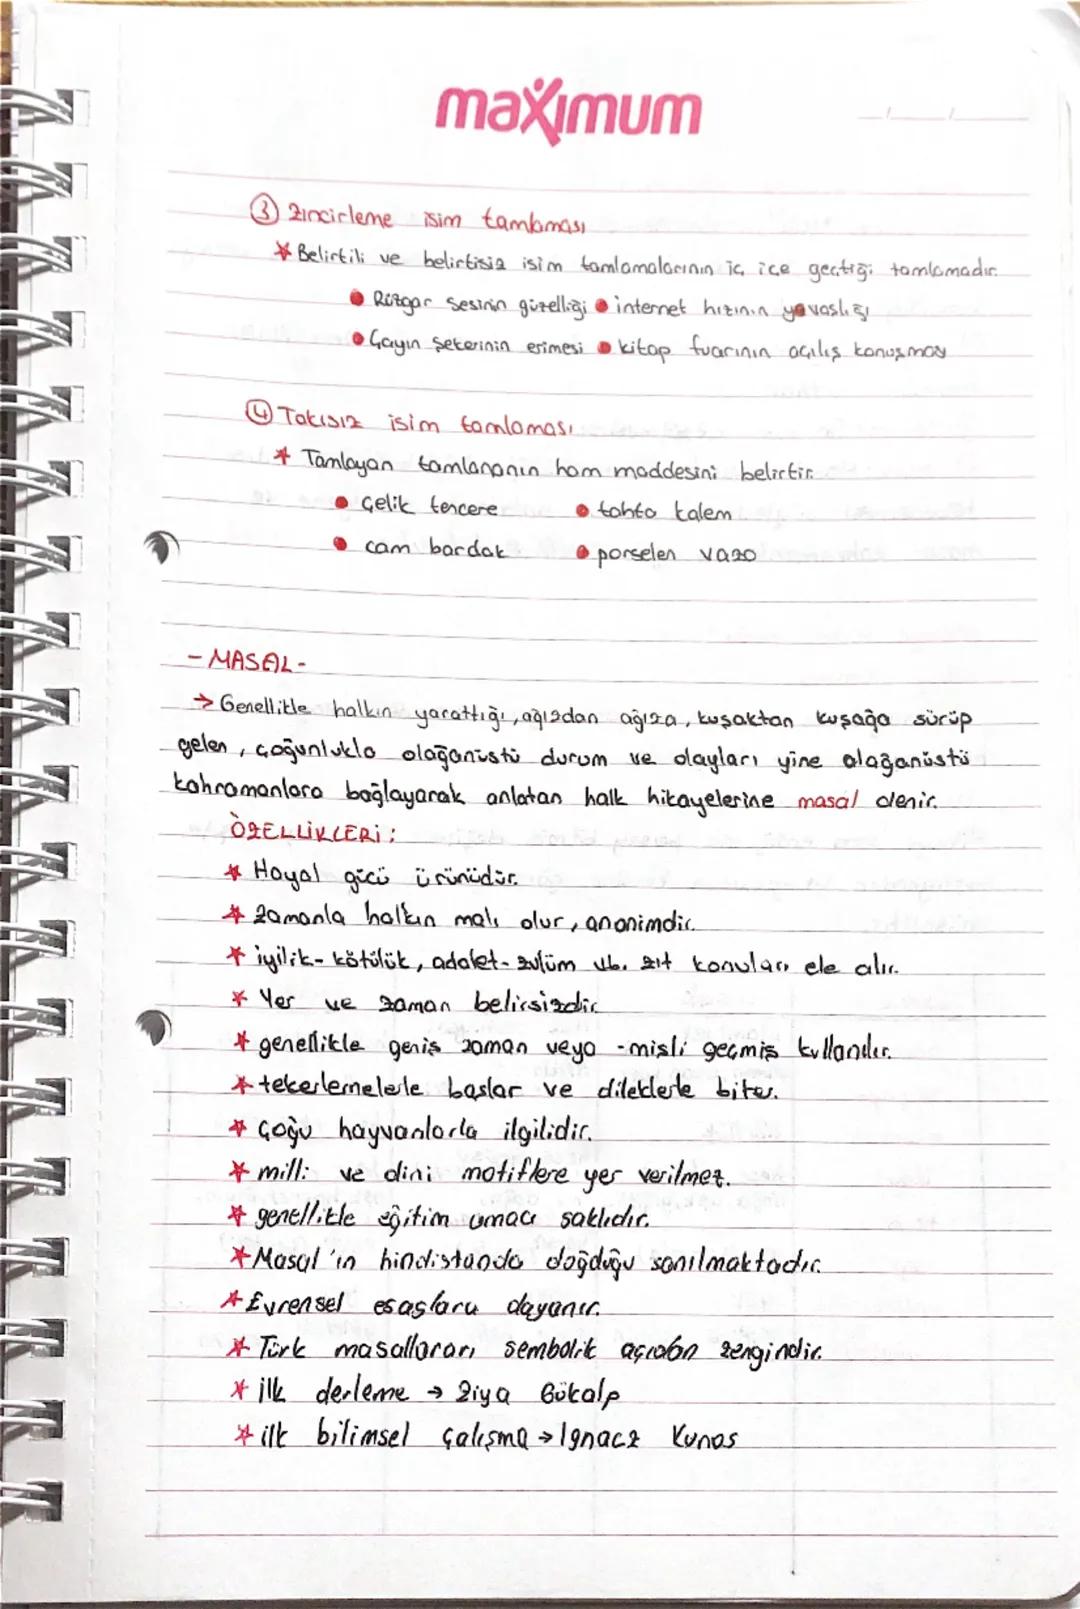 maximum
③ zincirleme isim tamlaması
* Belirtili ve belirtisiz isim tamlamalarının iç içe geçtiği tamlamadır.
• Rüzgar sesinin güzelliği • internet hızının yavaşlığı
• Çayın şekerinin erimesi • kitap fuarının açılış konuşması
④ Takısız isim tamlaması
* Tamlayan tamlananın ham maddesini belirtir.
• çelik tencere • tahta kalem
• cam bardak • porselen vazo
- MASAL -
→ Genellikle halkın yarattığı, ağızdan ağıza, kuşaktan kuşağa sürüp
gelen, çoğunlukla olağanüstü durum ve olayları yine olağanüstü
kahramanlara bağlayarak anlatan halk hikayelerine masal denir.
ÖZELLİKLERİ:
* Hayal gücü ürünüdür.
* zamanla halkın malı olur, anonimdir.
* iyilik - kötülük, adalet - zulüm vb. zıt konuları ele alır.
* Yer ve zaman belirsizdir.
* genellikle geniş zaman veya -mişli geçmiş kullanılır.
* tekerlemelerle başlar ve dileklerle biter.
* Çoğu hayvanlarla ilgilidir.
* milli ve dini motiflere yer verilmez.
* genellikle eğitim amacı saklıdır.
* Masal'ın hindistanda doğduğu sanılmaktadır.
* Evrensel esaslara dayanır.
* Türk masalları sembolik açıdan zengindir.
* ilk derleme → Ziya Gökalp
* ilk bilimsel çalışma → Ignacz Kunos